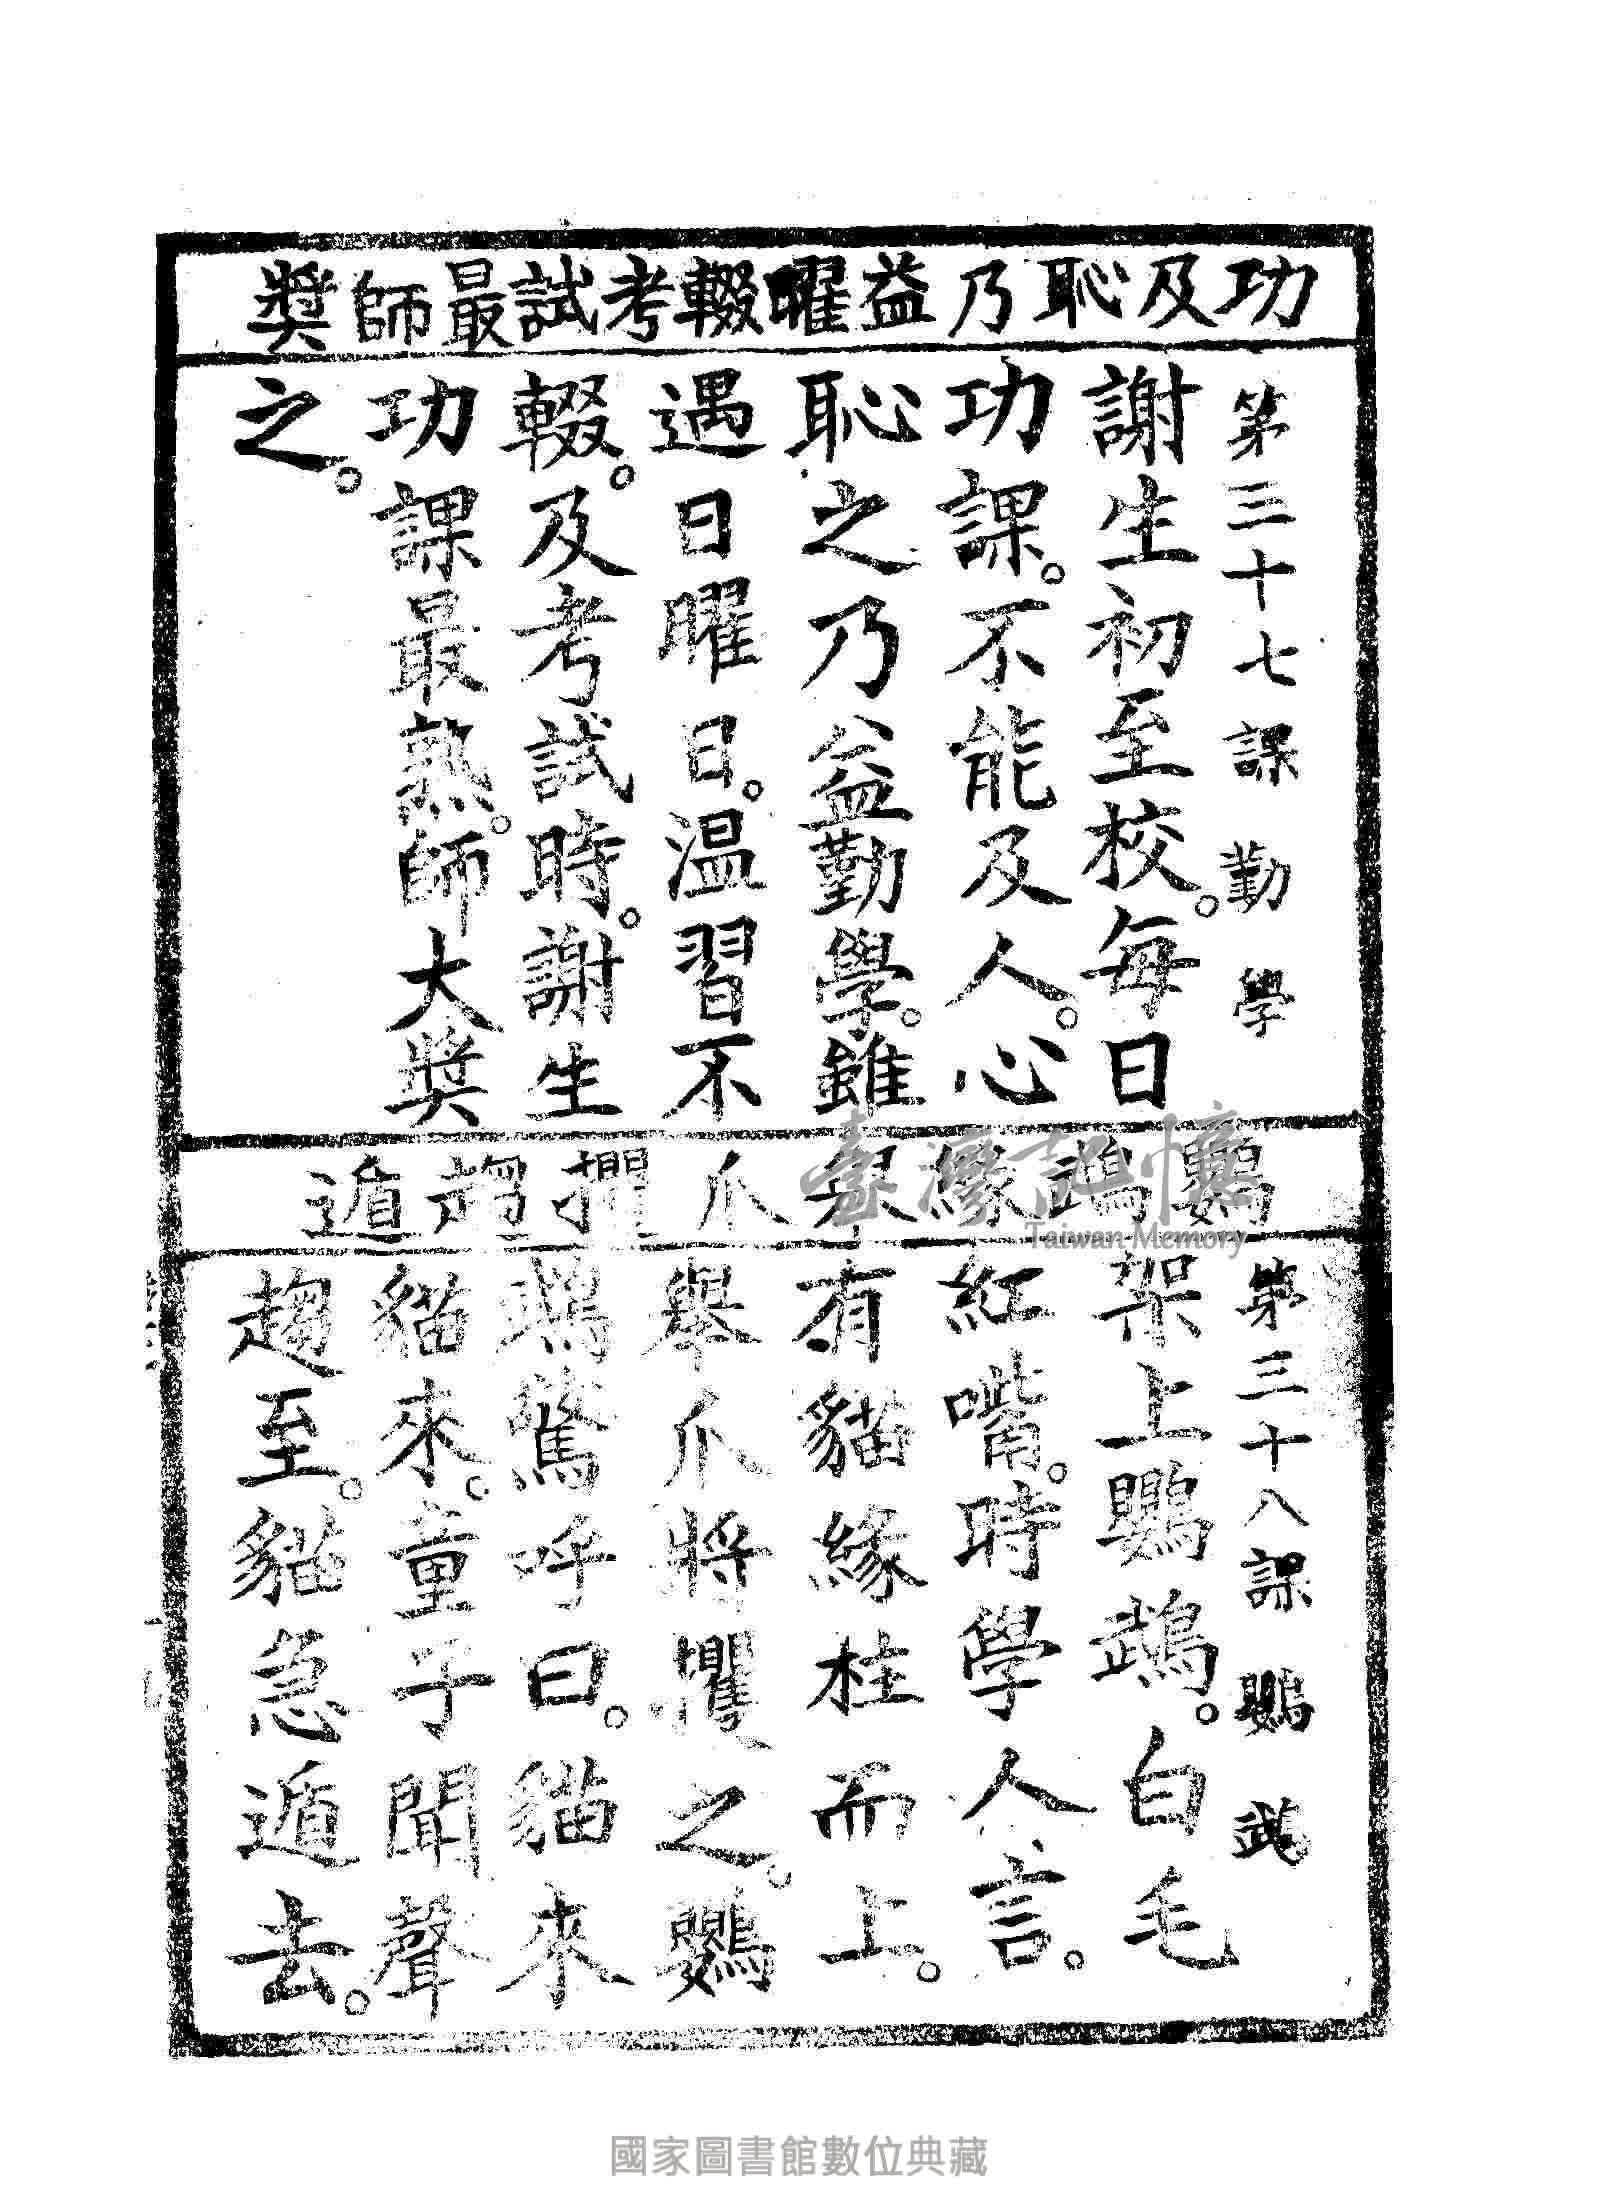 功及恥乃益曜輟考試最師奬
第三十七課 勤學
謝生初至校。每日
功課。不能及人。心
恥之乃益勤學。雖
遇日曜日。温習不
輟。及考試時。謝生
功課最熟。師大奬
之。
鸚鵡緣爪攫趨遁
第三十八課 鸚鵡
架上鸚鵡。白毛
紅嘴。時學人言。
有貓緣柱而上。
舉爪將攫之。鸚
鵡驚呼曰。貓來
貓來。童子聞聲
趨至。貓急遁去。
臺灣記憶
Taiwan Memory
國家圖書館數位典藏